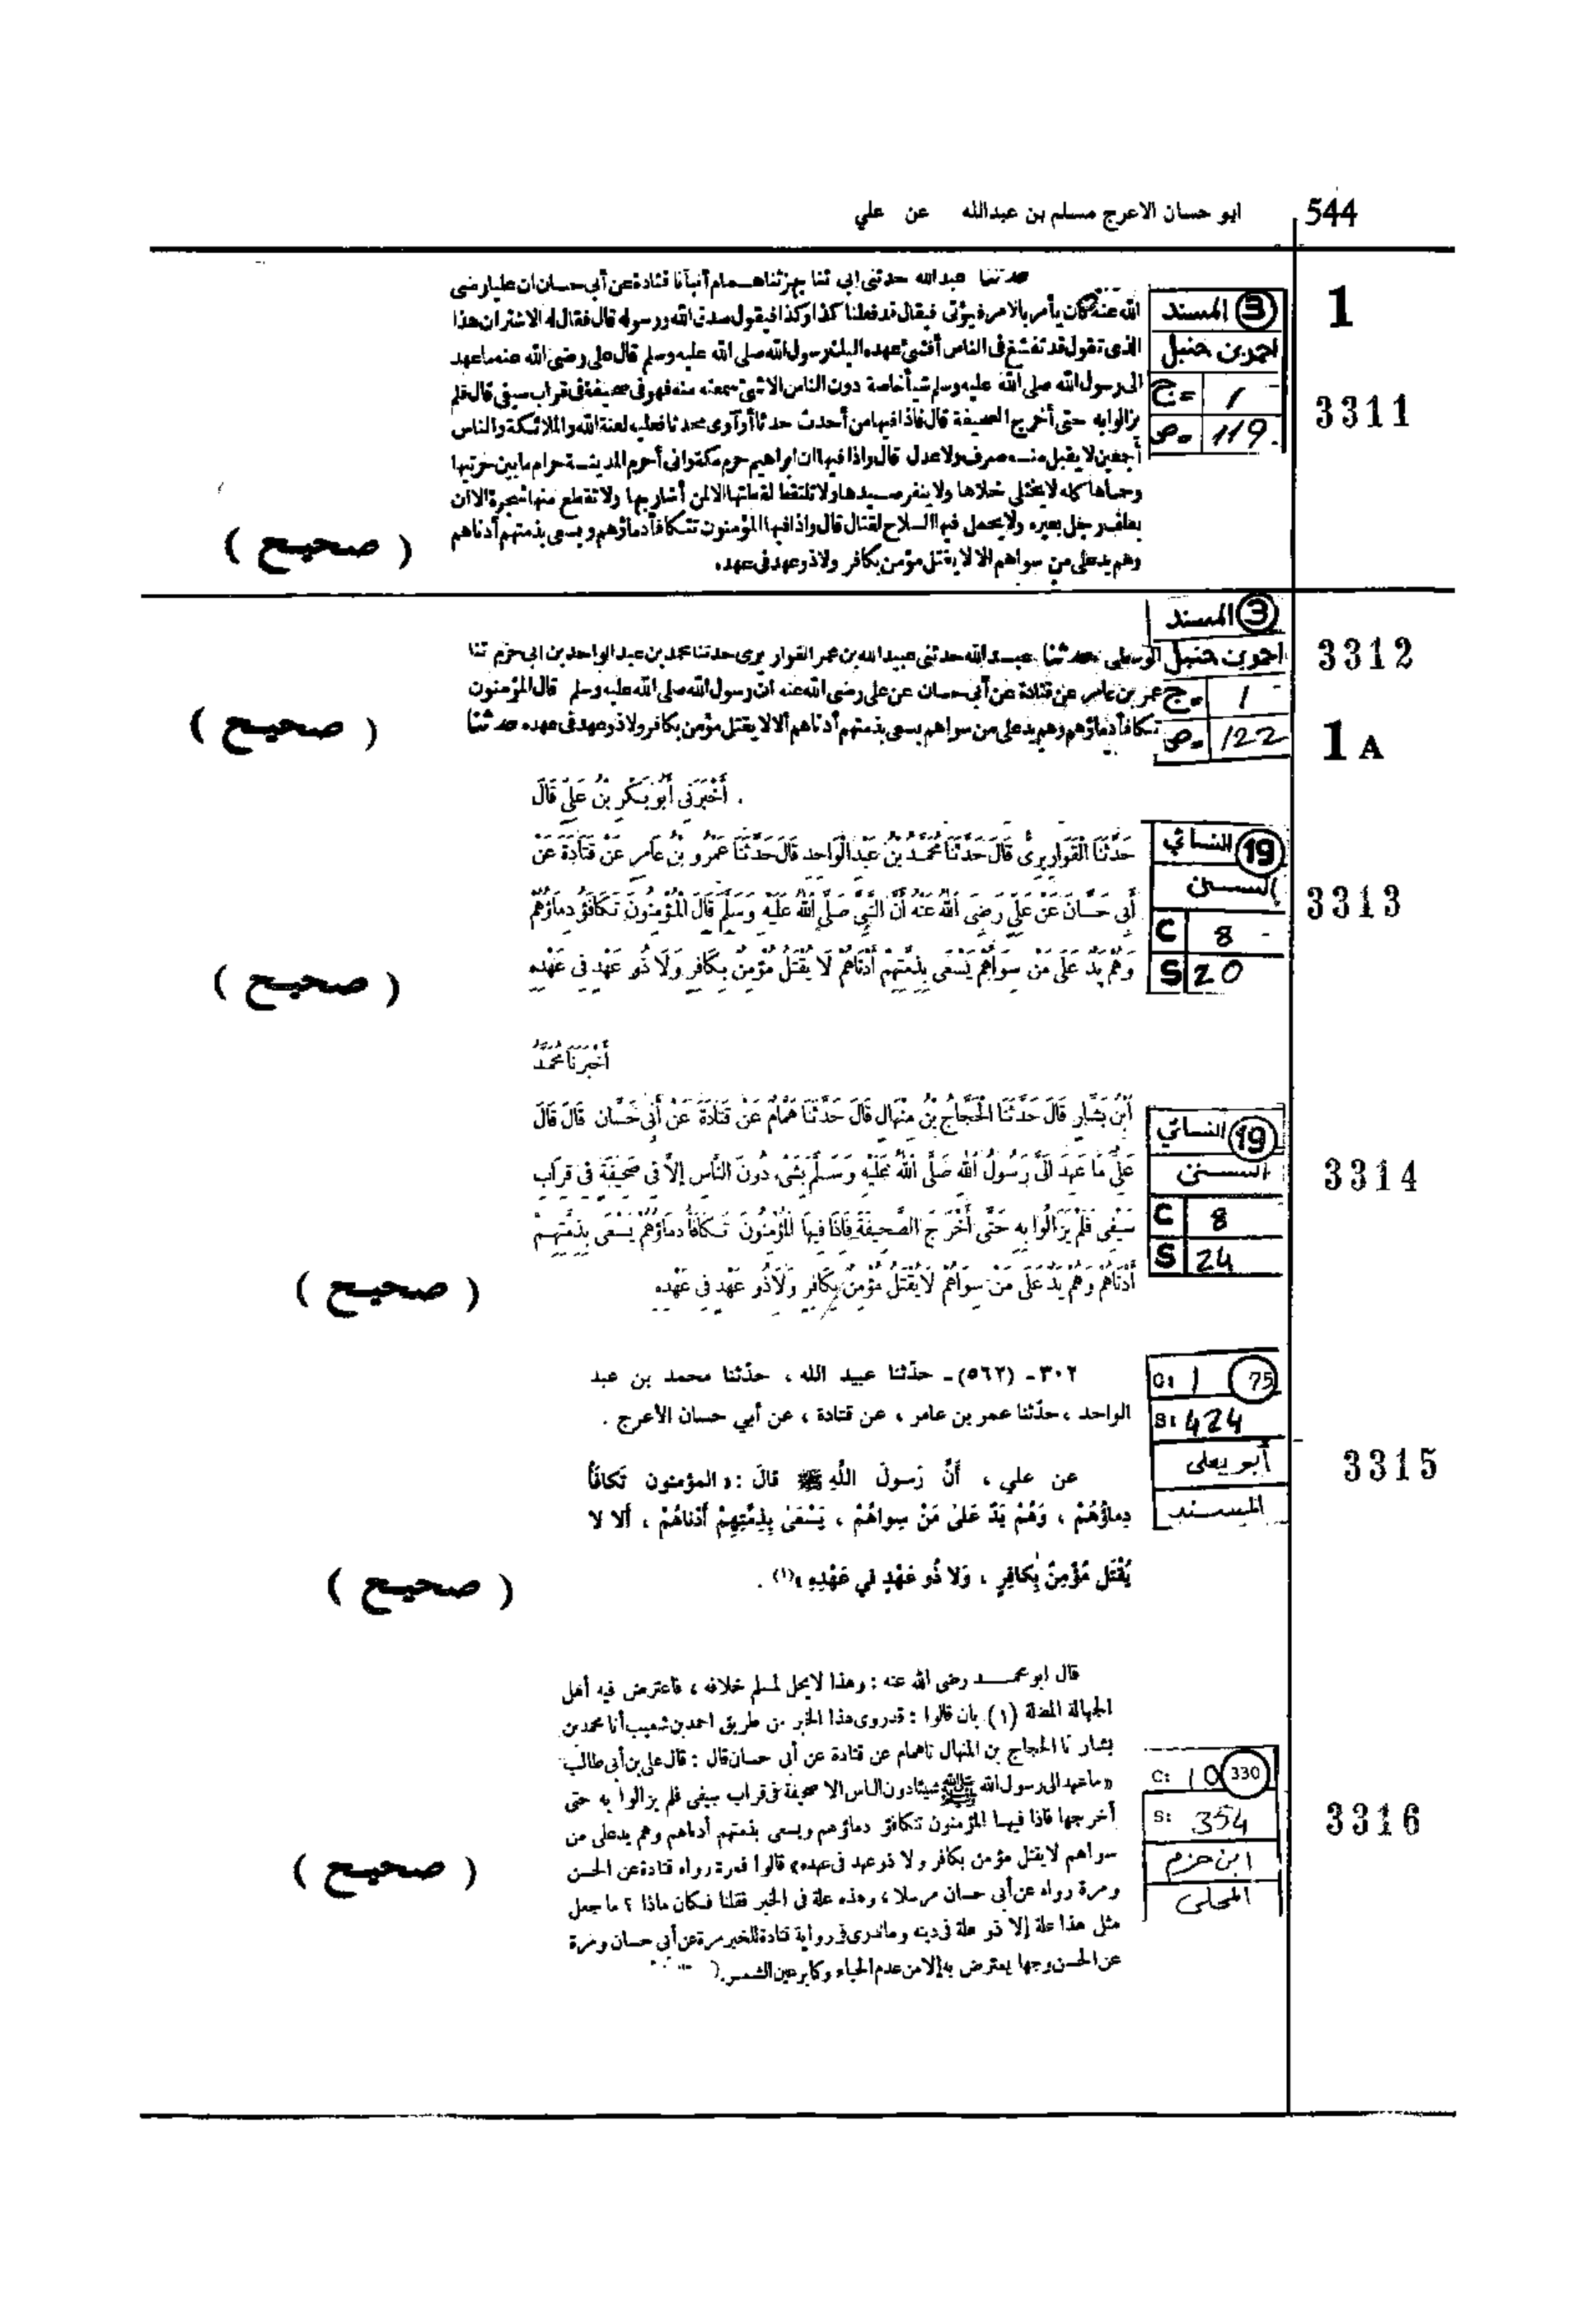 544
ابو حسان الاعرج مسلم بن عبدالله عن علي
1
3311
3 المسند
احمد بن حنبل
ج= 1
ص= 119
حدثنا عبدالله حدثنى ابى ثنا بهز ثنا همام أنبأنا قتادة عن أبى حسان ان عليا رضى
الله عنه كان يأمر بالامر فيؤتى فيقال قد فعلنا كذا وكذا فيقول صدق الله ورسوله قال فقال له الاشتر ان هذا
الذى تقول قد تفشغ فى الناس أفشئ عهده اليك رسول الله صلى الله عليه وسلم قال على رضى الله عنه ما عهد
الى رسول الله صلى الله عليه وسلم شيأ خاصة دون الناس الا شئ سمعته منه فهو فى صحيفة فى قراب سيفى قال فلم
يزالوا به حتى أخرج الصحيفة قال فاذا فيها من أحدث حدثا أو آوى محدثا فعليه لعنة الله والملائكة والناس
أجمعين لا يقبل منه صرف ولا عدل قال واذا فيها ان ابراهيم حرم مكة وانى أحرم المدينة حرام ما بين حرتيها
وحماها كله لا يختلى خلاها ولا ينفر صيدها ولا تلتقط لقطتها الا لمن أشار بها ولا تقطع منها شجرة الا ان
يعلف رجل بعيره ولا يحمل فيها السلاح لقتال قال واذا فيها المؤمنون تتكافأ دماؤهم ويسعى بذمتهم أدناهم
وهم يد على من سواهم الا لا يقتل مؤمن بكافر ولا ذو عهد فى عهده.
( صحيح )
3312
1 A
3 المسند
احمد بن حنبل
ج= 1
ص= 122
حدثنا عبد الله حدثنى عبيد الله بن عمر القواريرى حدثنا محمد بن عبد الواحد بن ابى حزم ثنا
عمر بن عامر عن قتادة عن أبى حسان عن على رضى الله عنه ان رسول الله صلى الله عليه وسلم قال المؤمنون
تكافأ دماؤهم وهم يد على من سواهم يسعى بذمتهم أدناهم ألا لا يقتل مؤمن بكافر ولا ذو عهد فى عهده حدثنا
( صحيح )
3313
19 النسائي
السنن
C 8
S 20
. أَخْبَرَنِى أَبُو بَكْرِ بْنُ عَلِىٍّ قَالَ
حَدَّثَنَا الْقَوَارِيرِىُّ قَالَ حَدَّثَنَا مُحَمَّدُ بْنُ عَبْدِ الْوَاحِدِ قَالَ حَدَّثَنَا عَمْرُو بْنُ عَامِرٍ عَنْ قَتَادَةَ عَنْ
أَبِى حَسَّانَ عَنْ عَلِىٍّ رَضِىَ اللهُ عَنْهُ أَنَّ النَّبِىَّ صَلَّى اللهُ عَلَيْهِ وَسَلَّمَ قَالَ الْمُؤْمِنُونَ تَكَافَؤُ دِمَاؤُهُمْ
وَهُمْ يَدٌ عَلَى مَنْ سِوَاهُمْ يَسْعَى بِذِمَّتِهِمْ أَدْنَاهُمْ لَا يُقْتَلُ مُؤْمِنٌ بِكَافِرٍ وَلَا ذُو عَهْدٍ فِى عَهْدِهِ
( صحيح )
3314
19 النسائي
السنن
C 8
S 24
أَخْبَرَنَا مُحَمَّدُ
ابْنُ بَشَّارٍ قَالَ حَدَّثَنَا الْحَجَّاجُ بْنُ مِنْهَالٍ قَالَ حَدَّثَنَا هَمَّامٌ عَنْ قَتَادَةَ عَنْ أَبِى حَسَّانَ قَالَ قَالَ
عَلِىٌّ مَا عَهِدَ إِلَىَّ رَسُولُ اللهِ صَلَّى اللهُ عَلَيْهِ وَسَلَّمَ بِشَىْءٍ دُونَ النَّاسِ إِلَّا فِى صَحِيفَةٍ فِى قِرَابِ
سَيْفِى فَلَمْ يَزَالُوا بِهِ حَتَّى أَخْرَجَ الصَّحِيفَةَ فَإِذَا فِيهَا الْمُؤْمِنُونَ تَكَافَأُ دِمَاؤُهُمْ يَسْعَى بِذِمَّتِهِمْ
أَدْنَاهُمْ وَهُمْ يَدٌ عَلَى مَنْ سِوَاهُمْ لَا يُقْتَلُ مُؤْمِنٌ بِكَافِرٍ وَلَا ذُو عَهْدٍ فِى عَهْدِهِ
( صحيح )
3315
C: 1 75
S: 424
أبو يعلى
المسند
٣٠٢ - (٥٦٢) - حدّثنا عبيد الله ، حدّثنا محمد بن عبد
الواحد ، حدّثنا عمر بن عامر ، عن قتادة ، عن أبي حسان الأعرج .
عن علي ، أَنَّ رَسولَ اللَّهِ ﷺ قالَ : « المؤمنون تَكافَأُ
دِماؤُهُمْ ، وَهُمْ يَدٌ عَلىٰ مَنْ سِواهُمْ ، يَسْعَىٰ بِذِمَّتِهِمْ أَدْناهُمْ ، ألا لا
يُقْتَل مُؤْمِنٌ بِكافِرٍ ، وَلا ذُو عَهْدٍ في عَهْدِهِ »(١) .
( صحيح )
3316
C: 10 330
S: 354
ابن حزم
المحلى
قال ابو محمد رضى الله عنه : وهذا لا يحل لمسلم خلافه ، فاعترض فيه أهل
الجهالة المضلة (١) بان قالوا : قد روى هذا الخبر من طريق احمد بن شعيب أنا محمد بن
بشار نا الحجاج بن المنهال نا همام عن قتادة عن أبى حسان قال : قال على بن أبى طالب
« ما عهد الى رسول الله ﷺ شيئا دون الناس الا صحيفة فى قراب سيفى فلم يزالوا به حتى
أخرجها فاذا فيها المؤمنون تتكافؤ دماؤهم ويسعى بذمتهم أدناهم وهم يد على من
سواهم لا يقتل مؤمن بكافر ولا ذو عهد فى عهده » قالوا فمرة رواه قتادة عن الحسن
ومرة رواه عن أبى حسان مرسلا ، وهذه علة فى الخبر فقلنا فكان ماذا ؟ ما جعل
مثل هذا علة إلا ذو علة فى دينه وما ندرى فى رواية قتادة للخبر مرة عن أبى حسان ومرة
عن الحسن وجها يعترض به إلا من عدم الحياء وكابر عين الشمس
( صحيح )